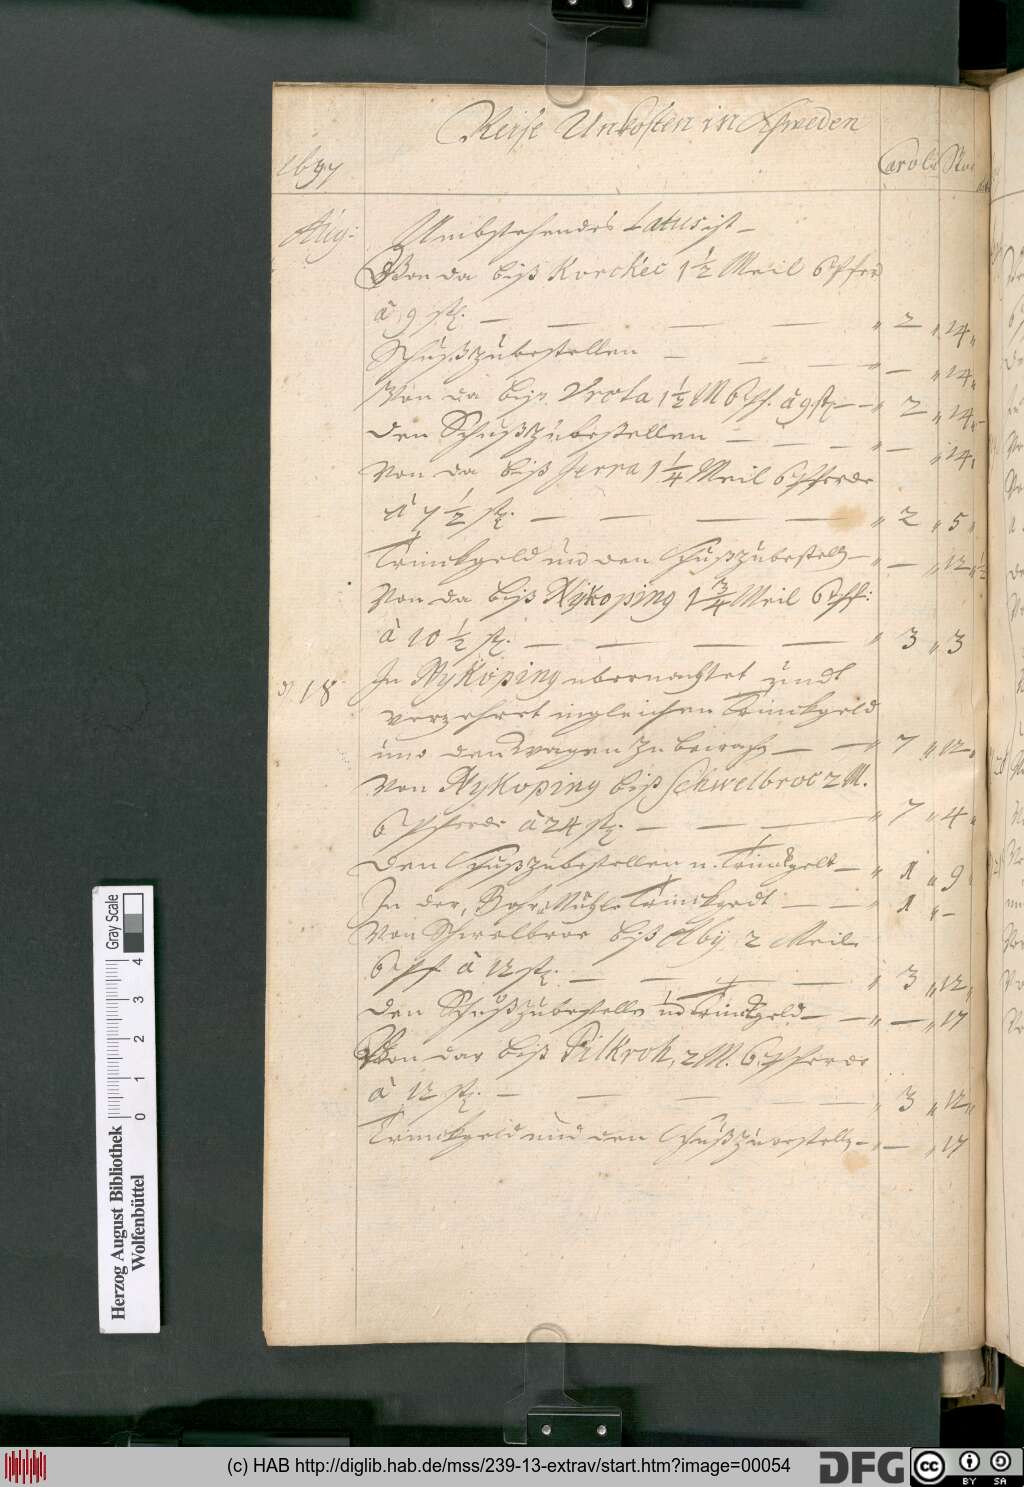 Reise Unkosten in Schweden
1697 Carolin Stüv
Aug: Umbstehendes Latus ist –
Von da biß Korckec 1½ Meil 6 Pfer
â 9 stl. – – – – „ 2 „ 14 „
Schußzubestellen – – – „ – „ 14 „
Von da biß Vrota 1½ M 6 Pf. â 9 stl – – „ 2 „ 14 „
den Schußzubestellen – – – – „ – „ 14 „
Von da biß Jerra 1¼ Meil 6 Pferde
â 7½ stl. – – – – „ 2 „ 5 „
Trinckgeld und den Schußzubestelln – „ – „ 12 „ ½
Von da biß Nykoping 1¾ Meil 6 Pf:
â 10½ stl. – – – – „ 3 „ 3
d 18 In Nykoping ubernachtet undt
verzehret ingleichen Trinckgeld
und den Wagen zu – – „ 7 „ 12 „
Von Nykoping biß Schwelbroc 2 M.
6 Pferde â 24 stl. – – – „ 7 „ 4 „
den Schußzubestellen u. Trinckgelt – „ 1 „ 9
In der Trinckgedt – – „ 1 „ –
Von Schwelbroc biß Aby 2 Meil
6 Pf â 12 stl. – – – – „ 3 „ 12 „
den Schußzubestelln und Trinckgeld – – „ – „ 17
Von dar biß Pilkroh, 2 M. 6 Pferde
â 12 stl. – – – – „ 3 „ 12 „
Trinckgeld und den Schußzubestelln – „ – „ 17
Herzog August Bibliothek
Wolfenbüttel
0 1 2 3 4
Gray Scale
(c) HAB http://diglib.hab.de/mss/239-13-extrav/start.htm?image=00054
DFG
cc BY SA